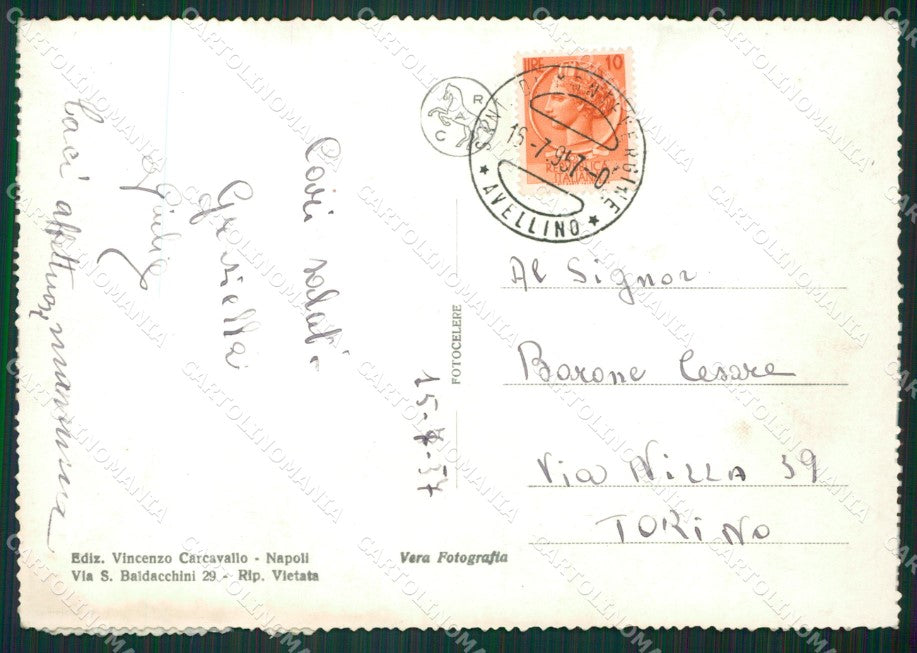 LIRE 10
REPUBBLICA
ITALIANA
15-7-957-0
★ AVELLINO ★
R
A
C
Cari saluti
Graziella
Giulio
Baci affettuosi mamma
15-7-57
FOTOCELERE
Al Signor
Barone Cesare
Via Nizza 39
TORINO
Ediz. Vincenzo Carcavallo - Napoli
Via S. Baldacchini 29 - Rip. Vietata
Vera Fotografia
CARTOLINOMANIA